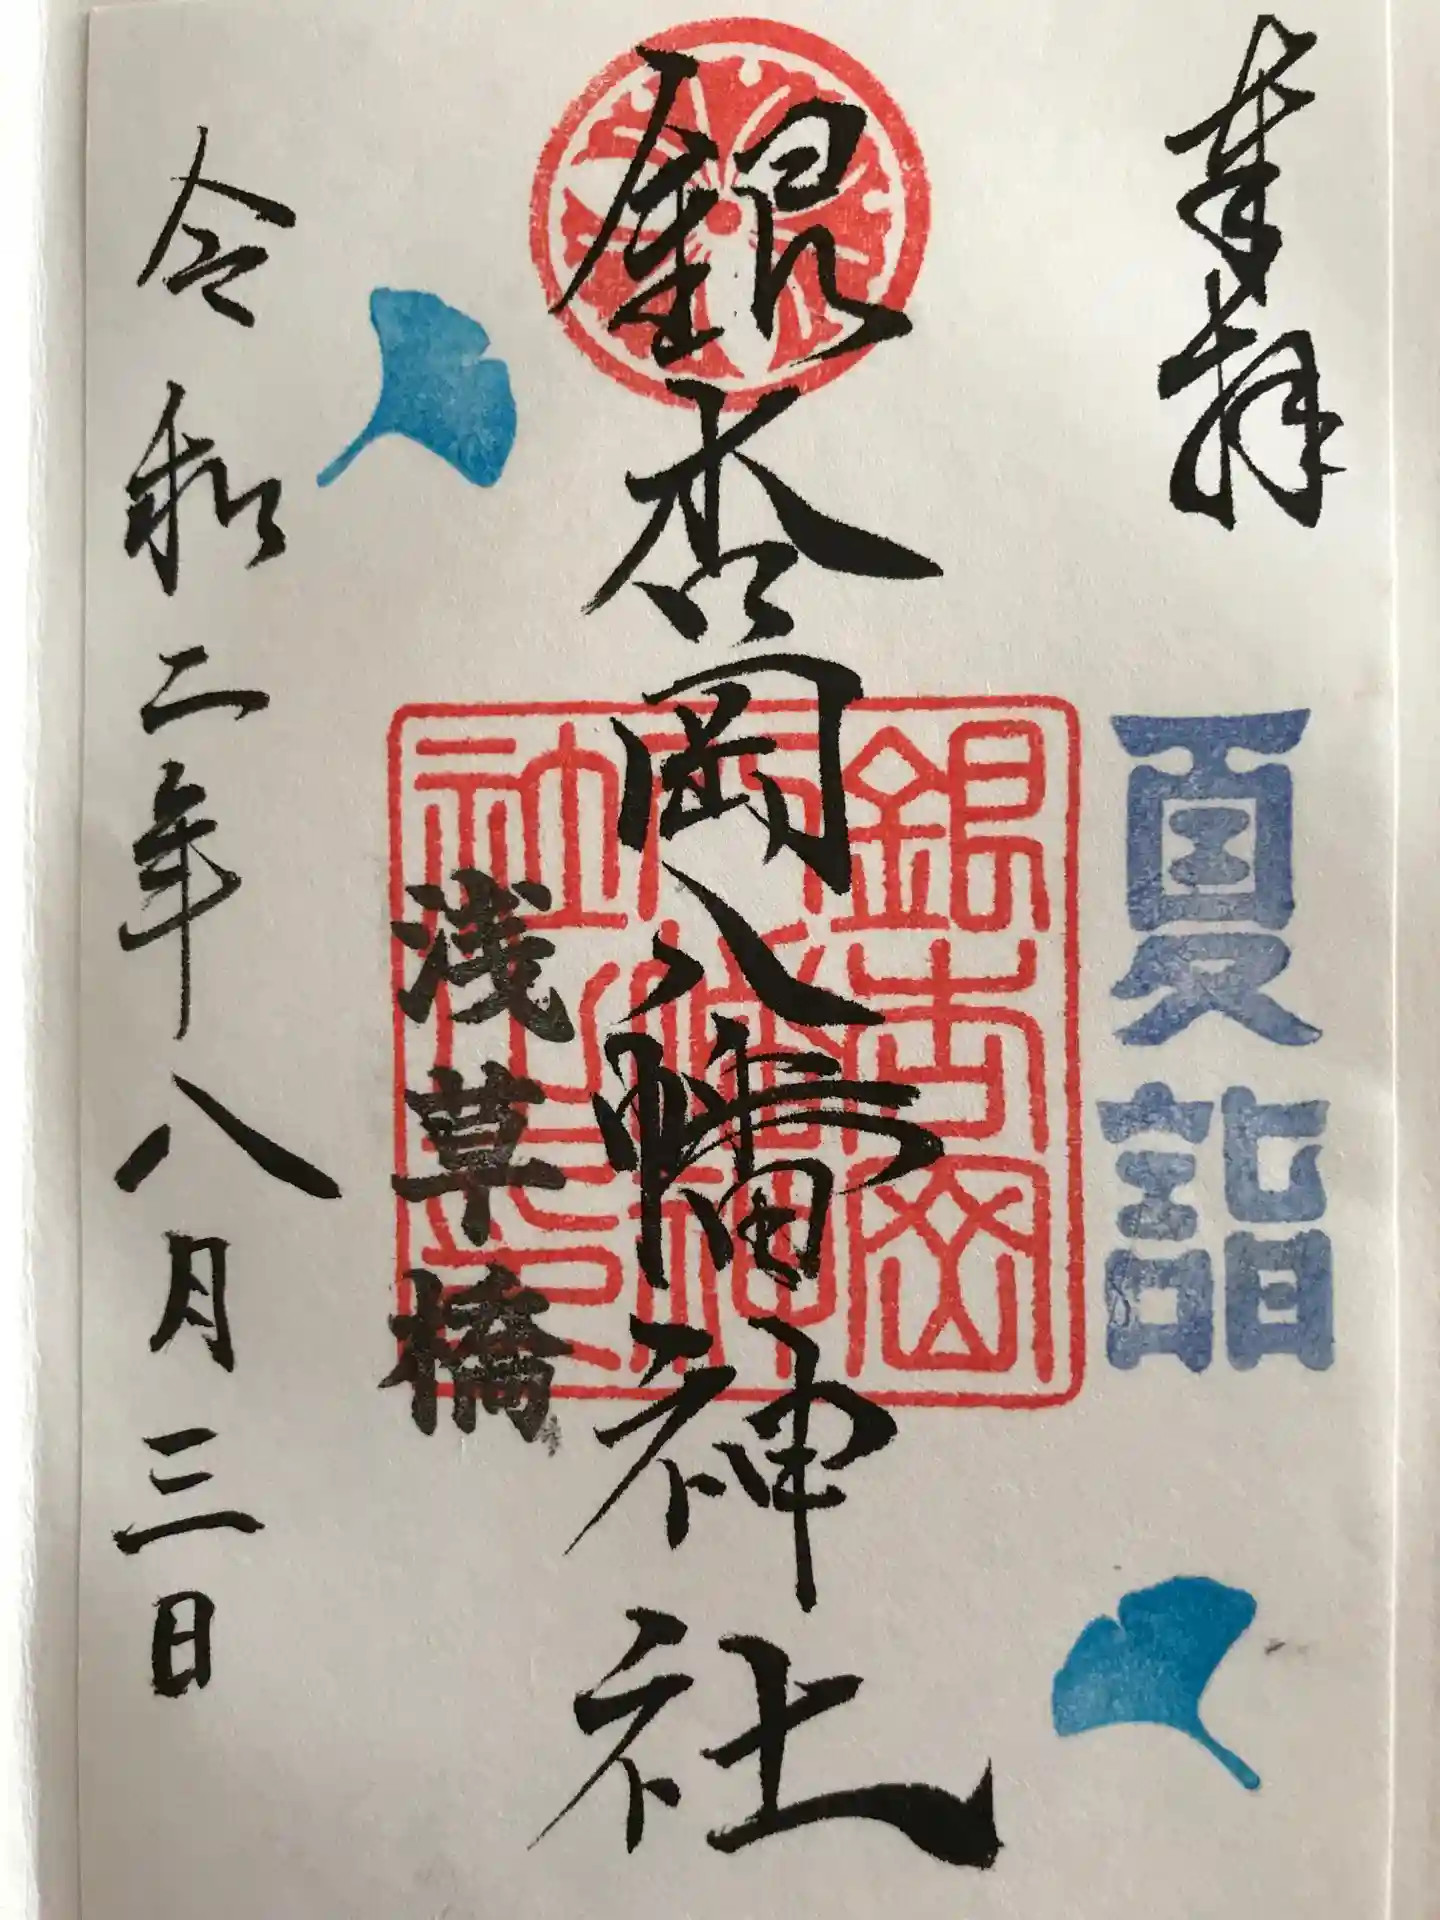 奉拝
夏詣
銀杏岡八幡神社
銀杏岡八幡神社之印
浅草橋
令和二年八月三日